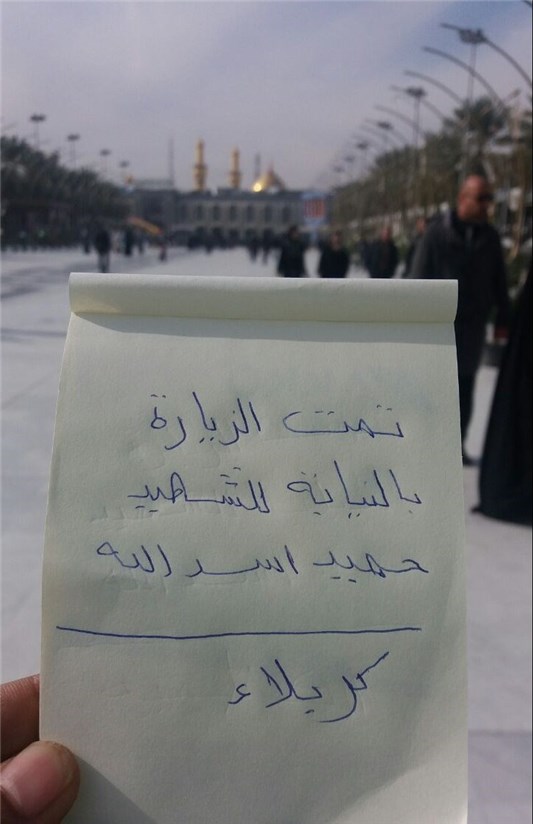 تمت الزيارة
بالنيابة للشهيد
حميد اسد الله
كربلاء